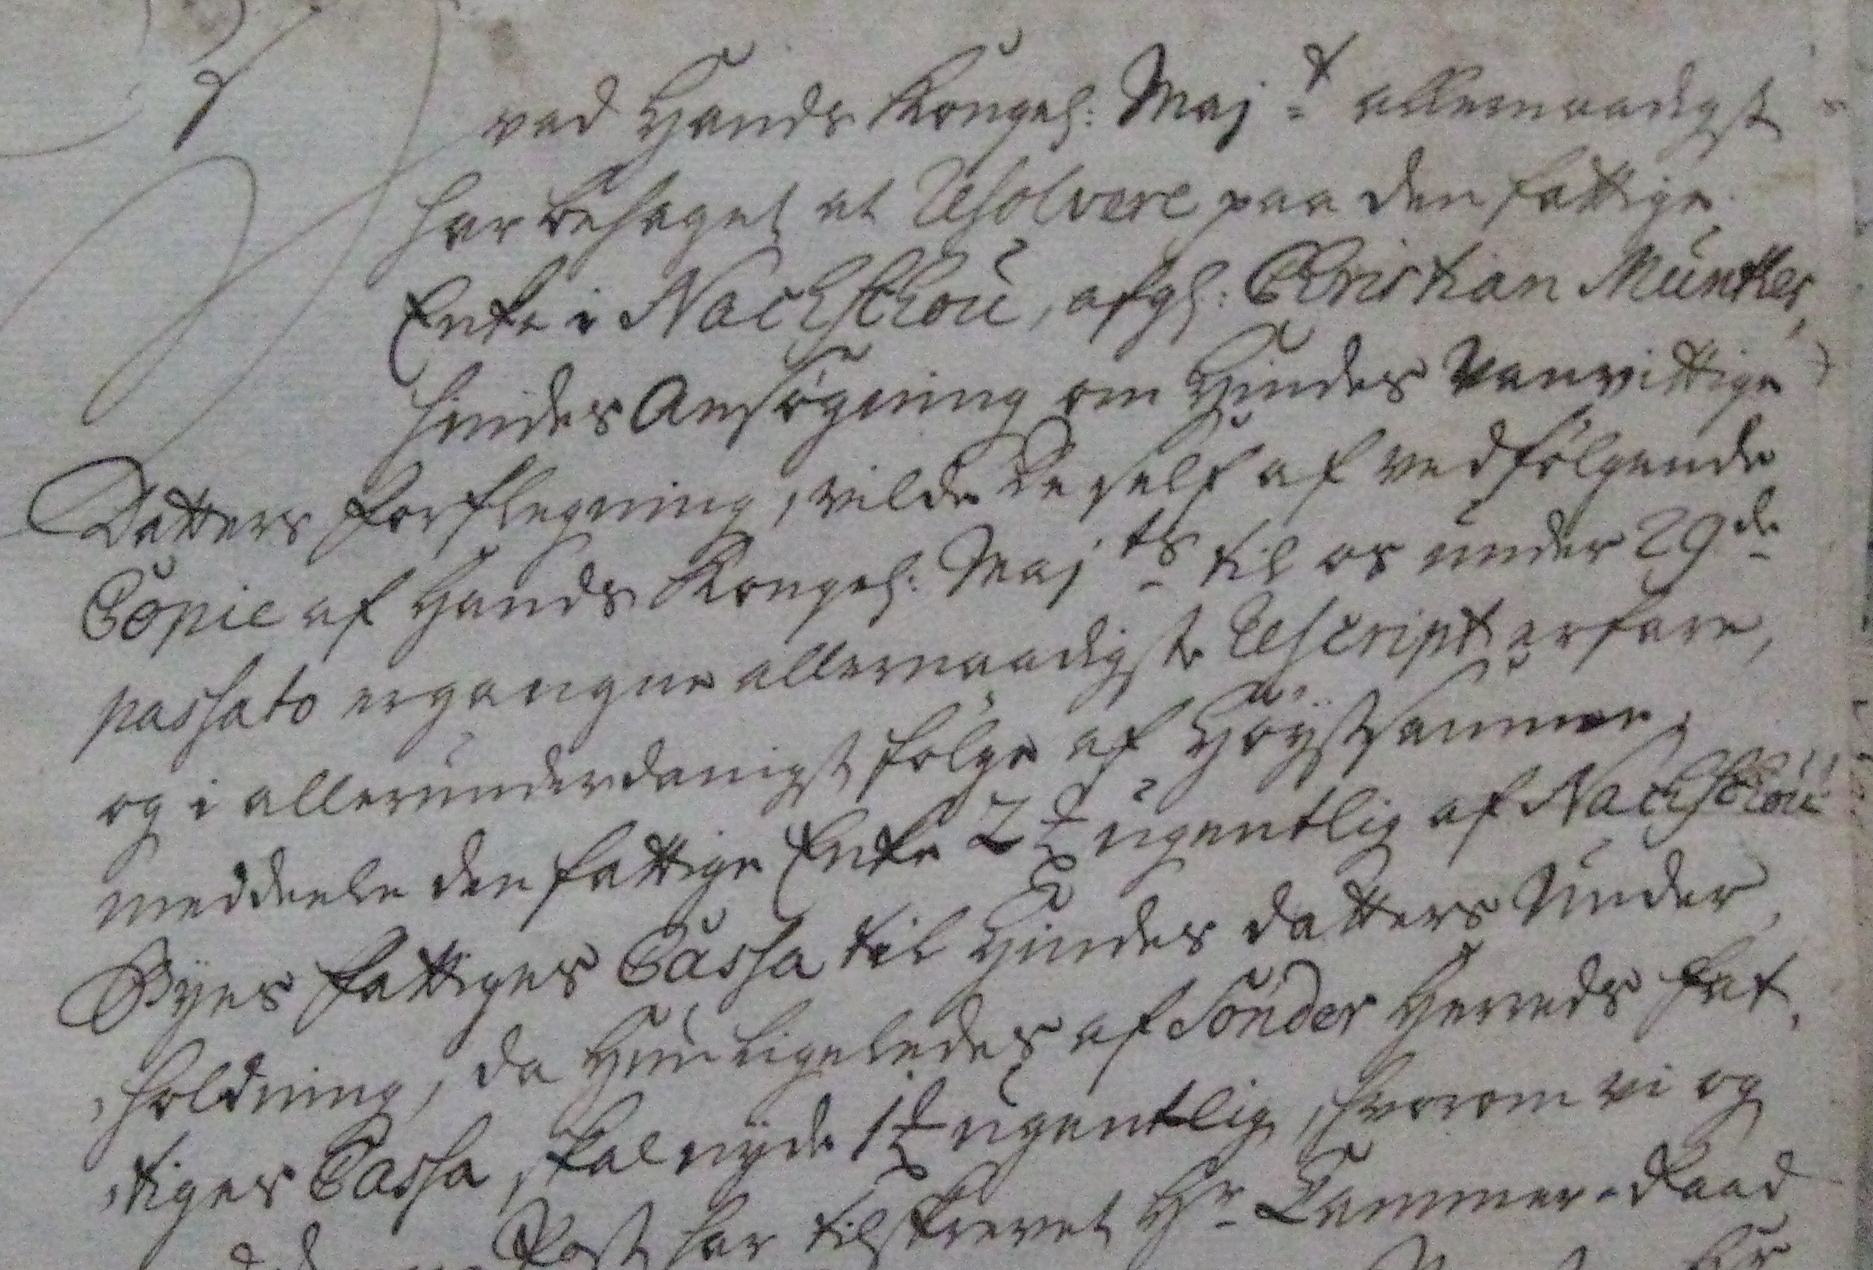 vad Hands Kongel: Maj:t allernaadigst
har behaget at Resolvere paa den fattige
Enke i Nachschou, afgl: Christian Munkes,
hindes Ansøgning om Hindes Vanvittige
Datters forflegning, vilde De self af vedfølgende
Copie af Hands Kongel: Maj:ts til os under 29de
passato ergangne allernaadigste Rescript erfare,
og i allerunderdanigst følge af Høystsamme,
meddeele den fattige Enke 2 ugentlig af Nachschou
Byes fattiges Cassa til Hindes datters Under,
,holdning, da Hun ligeledes af Sønder Herreds Fat,
,tiges Cassa, skal nyde 1 ugentlig, hvorom vi og
Post har tilskrevet Hr Cammer-Raad
Hr